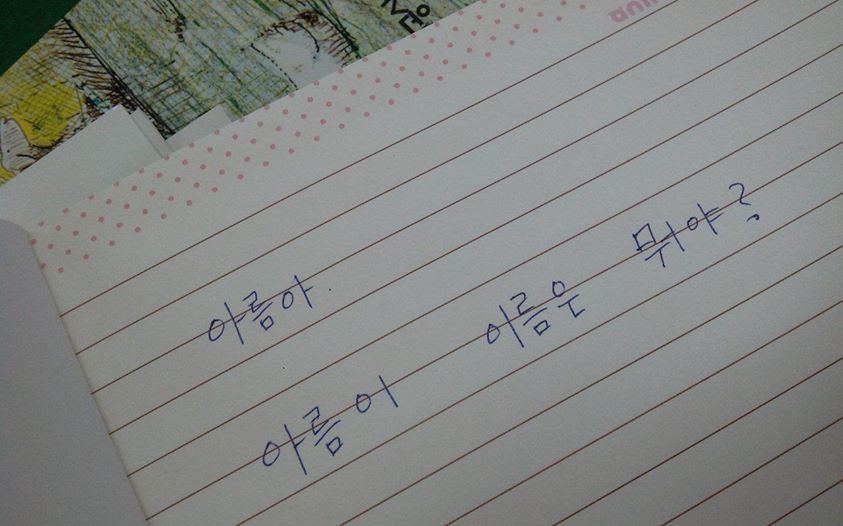 아름아. 이름은 뭐야?
아름이